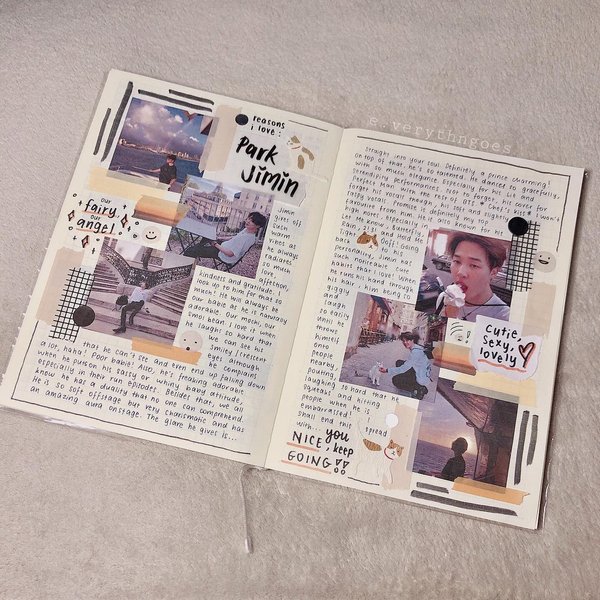 e.verythngoes
reasons
i love:
Park
Jimin
our
fairy,
our
angel
Jimin
gives off
such
warm
vibes as
he always
radiates
so much
love,
affection,
kindness and gratitude. I
look up to him for that so
much! He will always be
our babie as he is naturally
adorable. Our mochi, our
smol bean. I love it when
he laughs so hard that
we can see his
eyes although
smile / refless
that he can't see and even end up falling down
a lot, haha! Poor babie! Also, he's freaking adorable
when he pulls on his sassy or whiny baby attitude,
especially in their run episodes. Besides that, we all
know he has a duality that no one can comprehend.
He is so soft offstage but very charismatic and has
an amazing aura onstage. The glare he gives is...
straight into your soul. Definitely a prince charming!
On top of that, he's so talented. He danced so gracefully,
with so much elegance. Especially for his Lie and
Serendipity performances! Not to forget, his cover for
Perfect Man with the rest of BTS *chef's kiss* I won't
forget his vocals though, his soft and slightly
raspy vocals. Promise is definitely my top
favourite from him. He is also known for his
high notes, especially in
Let Me Know, Butterfly,
Rain, and Hold Me
Tight. Oof! Going
back to his
personality, Jimin has
such noticeable cute
habits that I love. When
he runs his hand through
his hair, him being so
giggly
and
laugh
so easily
until he
throws
himself
onto
people
nearby,
pouting
so hard that he
laughing
squeaks and hitting
people when he is
embarrassed! I
shall end this spread
with...
you
NICE, keep
GOING!!
Cutie,
sexy,
lovely